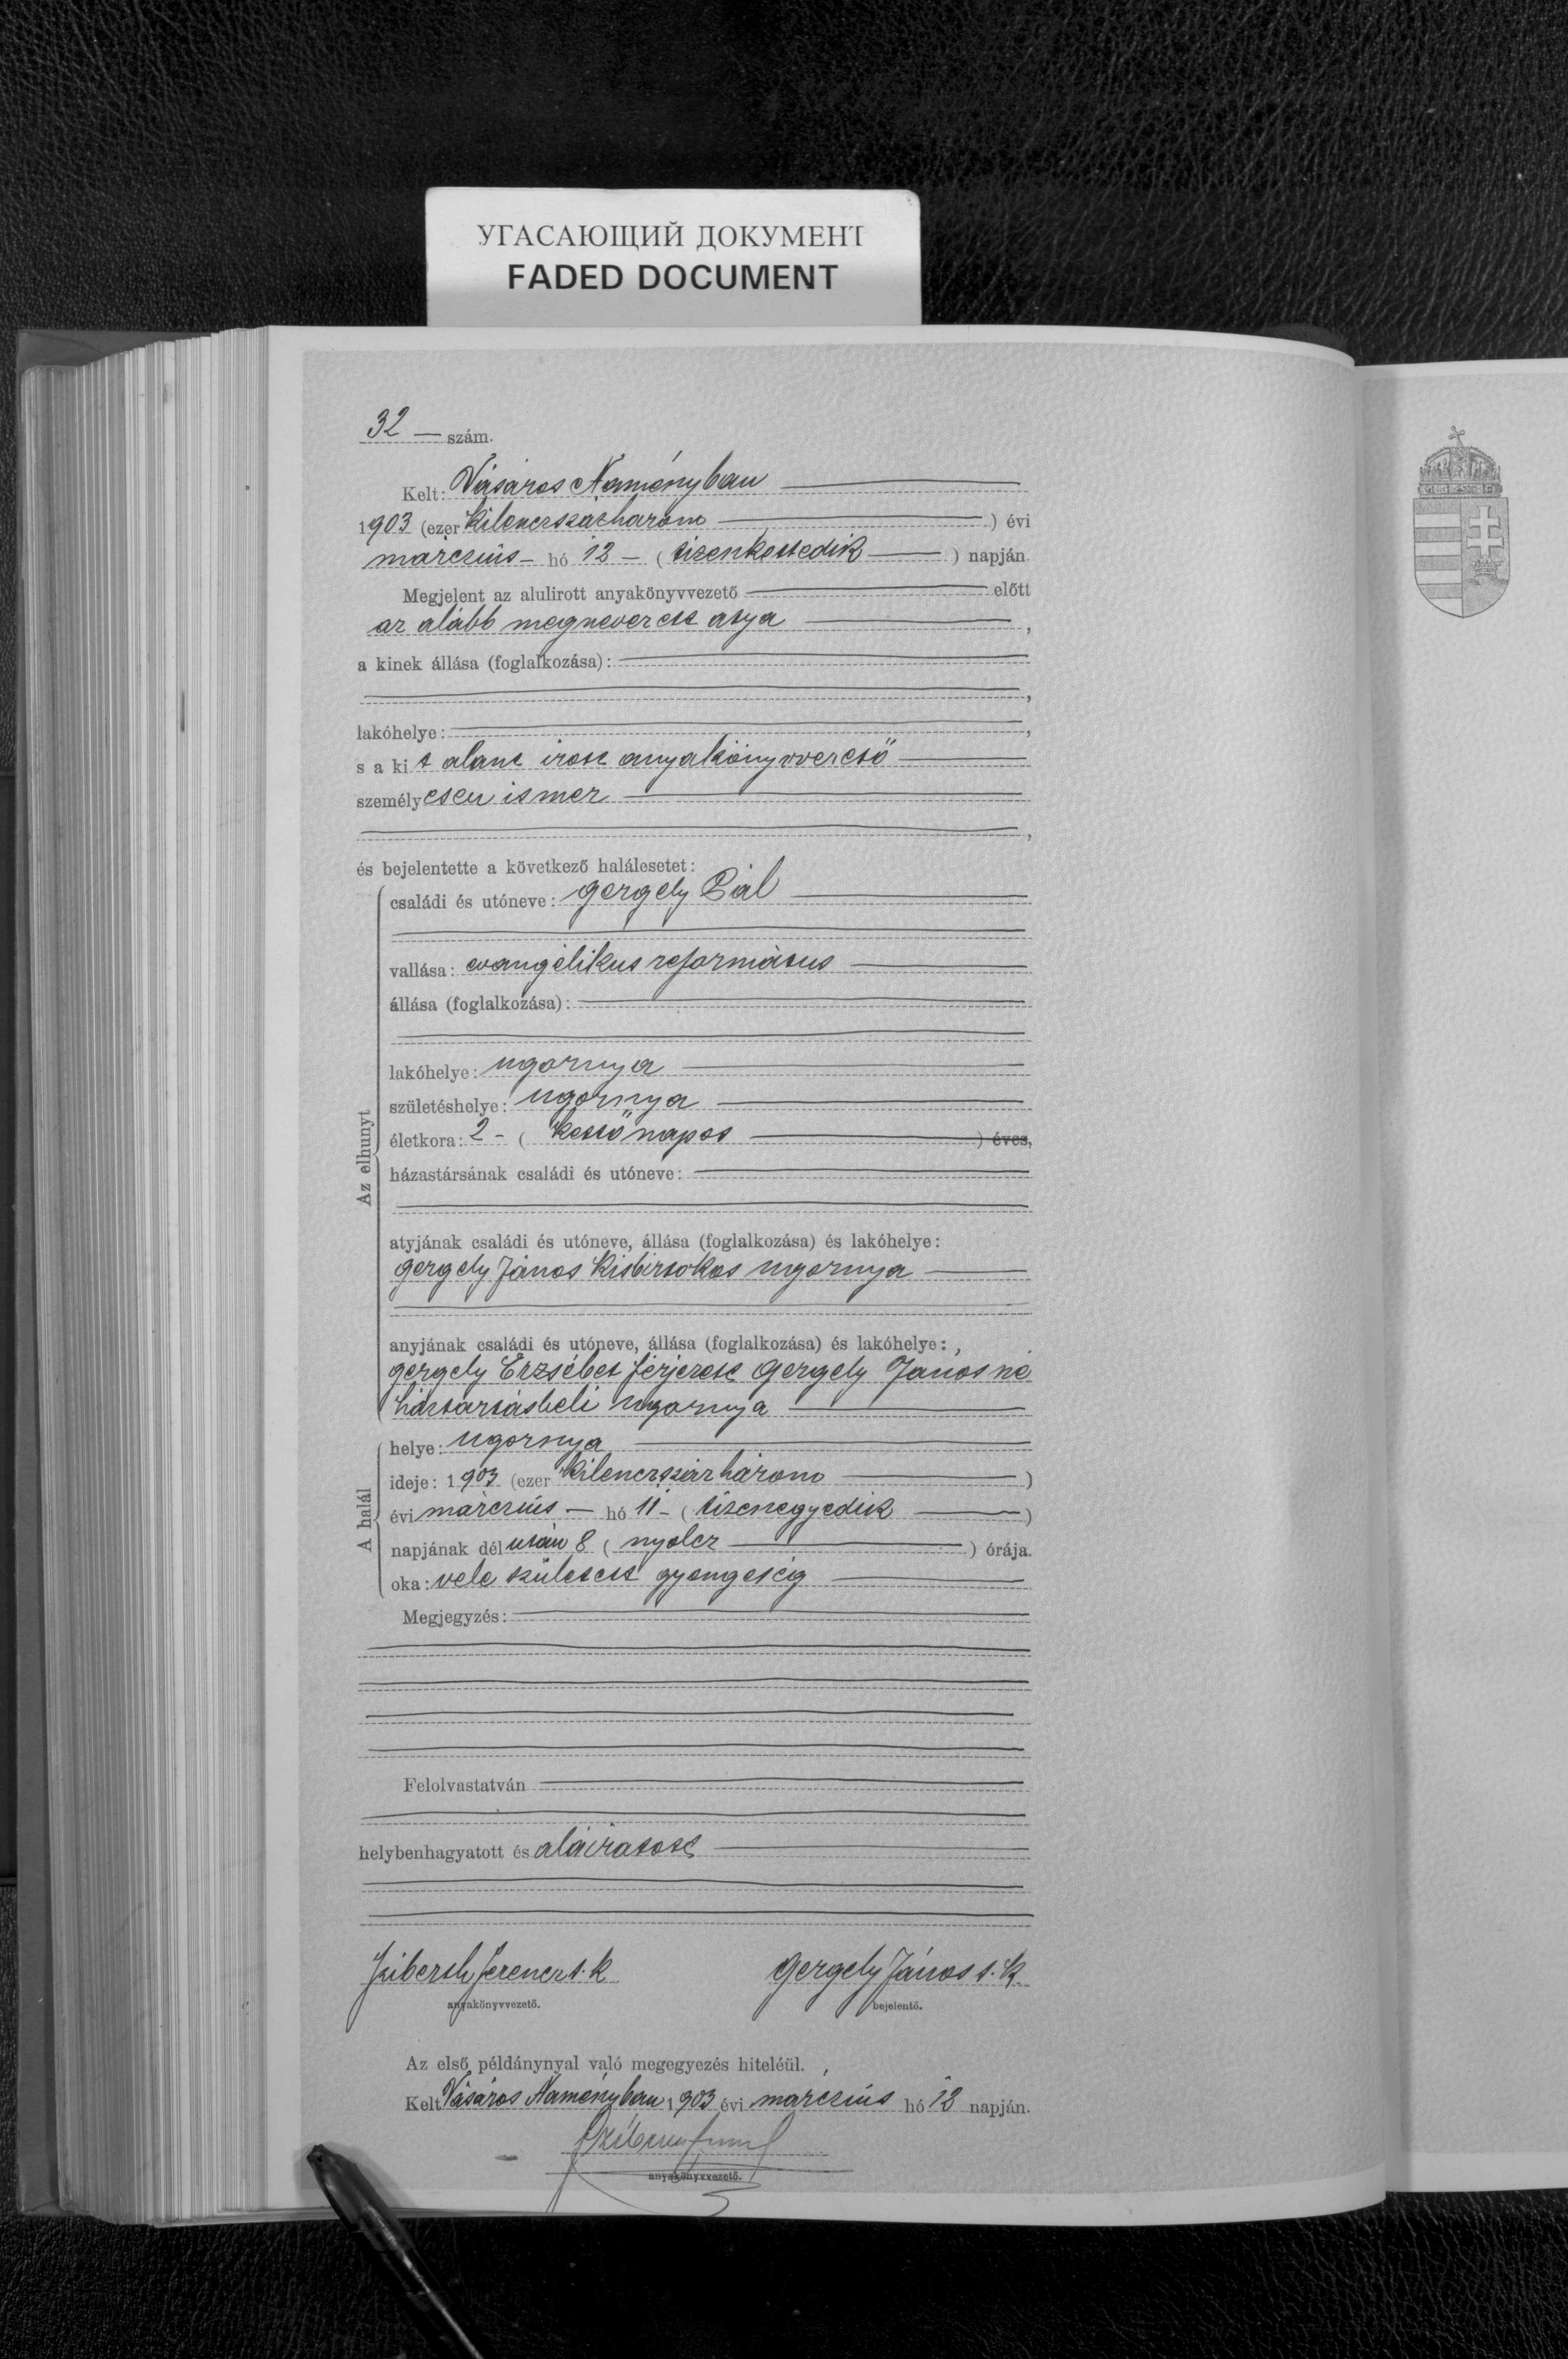 УГАСАЮЩИЙ ДОКУМЕНТ
FADED DOCUMENT
32 — szám.
Kelt: Vásáros Naményban
1903 (ezer kilenczszázhárom) évi
márczius – hó 12 – (tizenkettedik) napján.
Megjelent az alulirott anyakönyvvezető előtt
az alább megnevezett atya,
a kinek állása (foglalkozása):
,
lakóhelye: ,
s a kit alant irott anyakönyvvezető
személyesen ismer
,
és bejelentette a következő halálesetet:
Az elhunyt
családi és utóneve: Gergely Pál
vallása: evangélikus református
állása (foglalkozása):
lakóhelye: Ugornya
születéshelye: Ugornya
életkora: 2 – (kettő napos) éves,
házastársának családi és utóneve:
atyjának családi és utóneve, állása (foglalkozása) és lakóhelye:
Gergely János kisbirtokos Ugornya
anyjának családi és utóneve, állása (foglalkozása) és lakóhelye:
Gergely Erzsébet férjezett Gergely Jánosné
háztartásbeli Ugornya
A halál
helye: Ugornya
ideje: 1903 (ezer kilenczszázhárom)
évi márczius – hó 11 – (tizenegyedik)
napjának dél után 8 (nyolcz) órája.
oka: vele született gyengeség
Megjegyzés:
Felolvastatván
helybenhagyatott és aláiratott
Ferencz s. k. Gergely János s. k.
anyakönyvvezető. bejelentő.
Az első példánynyal való megegyezés hiteléül.
Kelt Vásáros Naményban 1903 évi márczius hó 12 napján.
anyakönyvvezető.